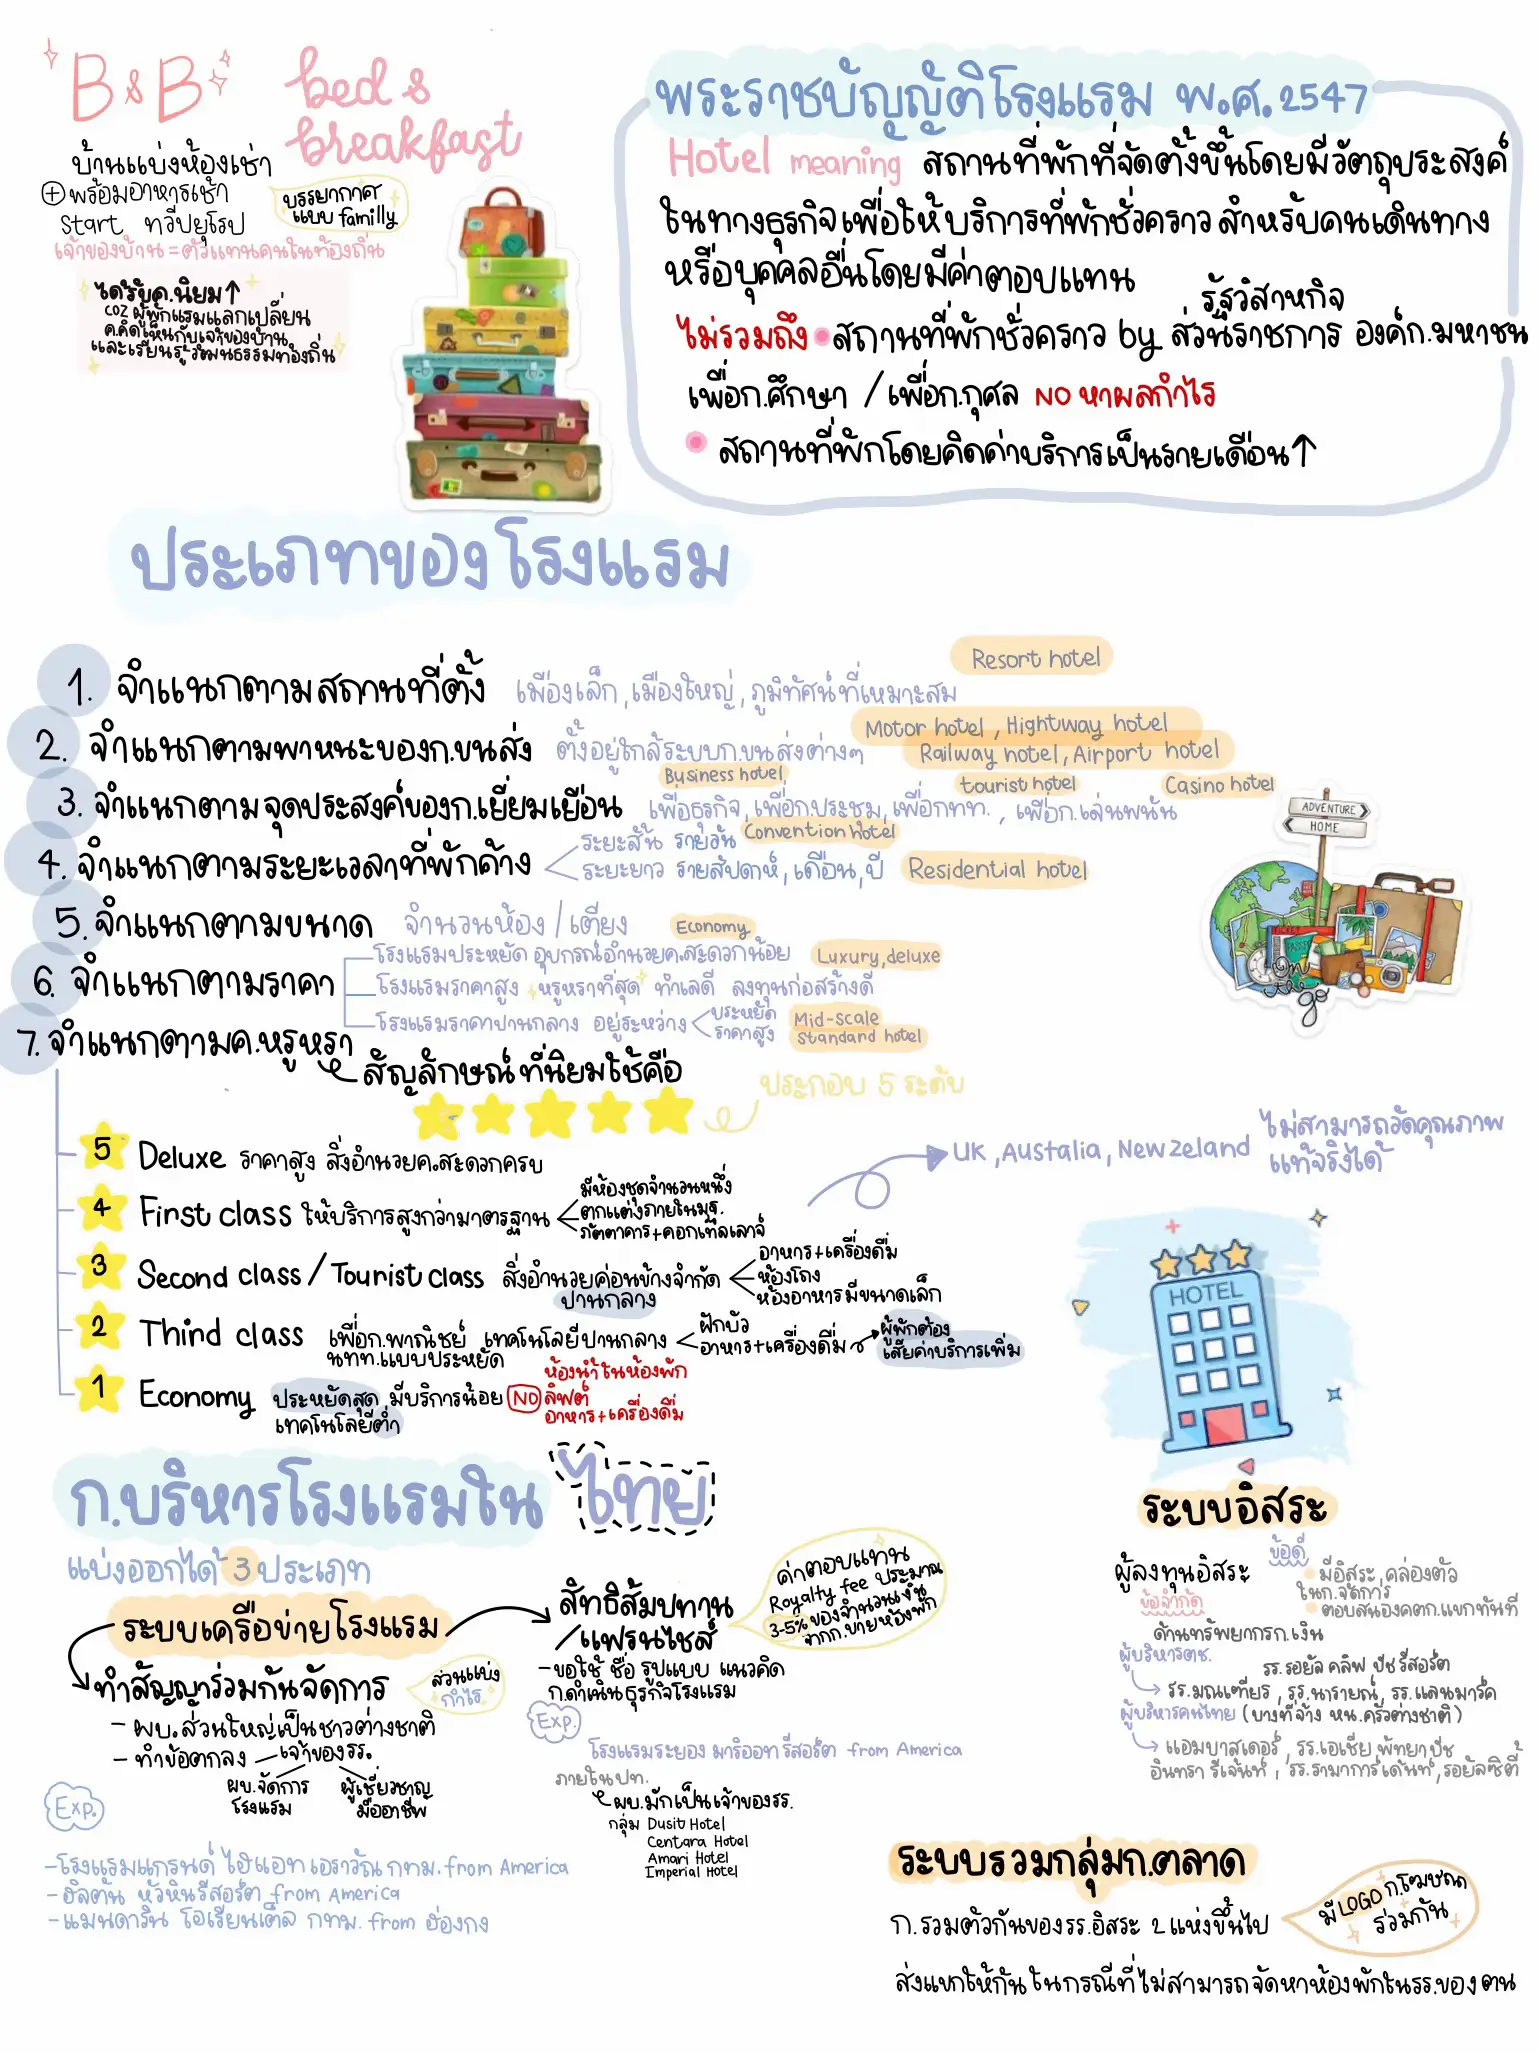 B & B
bed & breakfast
บ้านแบ่งห้องเช่า
⊕ พร้อมอาหารเช้า
Start ทวีปยุโรป
บรรยากาศ
แบบ familly
เจ้าของบ้าน = ตัวแทนคนในท้องถิ่น
ได้รับค.นิยม↑
coz ผู้พักแรมแลกเปลี่ยน
ค.คิดเห็นกับเจ้าของบ้าน
และเรียนรู้วัฒนธรรมท้องถิ่น
พระราชบัญญัติโรงแรม พ.ศ. 2547
Hotel meaning สถานที่พักที่จัดตั้งขึ้นโดยมีวัตถุประสงค์
ในทางธุรกิจเพื่อให้บริการที่พักชั่วคราว สำหรับคนเดินทาง
หรือบุคคลอื่นโดยมีค่าตอบแทน
รัฐวิสาหกิจ
ไม่รวมถึง • สถานที่พักชั่วคราว by ส่วนราชการ องค์ก.มหาชน
เพื่อก.ศึกษา / เพื่อก.กุศล NO หาผลกำไร
• สถานที่พักโดยคิดค่าบริการเป็นรายเดือน↑
ประเภทของโรงแรม
Resort hotel
1. จำแนกตามสถานที่ตั้ง เมืองเล็ก, เมืองใหญ่, ภูมิทัศน์ที่เหมาะสม
Motor hotel, Hightway hotel
2. จำแนกตามพาหนะของก.ขนส่ง ตั้งอยู่ใกล้ระบบก.ขนส่งต่างๆ
Railway hotel, Airport hotel
Business hotel tourist hotel Casino hotel
3. จำแนกตามจุดประสงค์ของก.เยี่ยมเยือน เพื่อธุรกิจ, เพื่อก.ประชุม, เพื่อกทท., เพื่อก.เล่นพนัน
Convention hotel
4. จำแนกตามระยะเวลาที่พักค้าง
ระยะสั้น รายวัน
ระยะยาว รายสัปดาห์, เดือน, ปี Residential hotel
5. จำแนกตามขนาด จำนวนห้อง / เตียง
Economy
6. จำแนกตามราคา
โรงแรมประหยัด อุปกรณ์อำนวยค.สะดวกน้อย
Luxury, deluxe
โรงแรมราคาสูง หรูหราที่สุด ทำเลดี ลงทุนก่อสร้างดี
โรงแรมราคาปานกลาง อยู่ระหว่าง ประหยัด ราคาสูง
Mid-scale
Standard hotel
7. จำแนกตามค.หรูหรา
สัญลักษณ์ที่นิยมใช้คือ
ประกอบ 5 ระดับ
5 Deluxe ราคาสูง สิ่งอำนวยค.สะดวกครบ
UK, Austalia, New Zeland ไม่สามารถวัดคุณภาพ
แท้จริงได้
4 First class ให้บริการสูงกว่ามาตรฐาน
มีห้องชุดจำนวนหนึ่ง
ตกแต่งภายในมฐ.
ภัตตาคาร+คอกเทลเลาจ์
3 Second class / Tourist class สิ่งอำนวยค่อนข้างจำกัด
ปานกลาง
อาหาร+เครื่องดื่ม
ห้องโถง
ห้องอาหารมีขนาดเล็ก
2 Third class เพื่อก.พาณิชย์ เทคโนโลยีปานกลาง
นทท.แบบประหยัด
ฝักบัว
อาหาร+เครื่องดื่ม
ผู้พักต้อง
เสียค่าบริการเพิ่ม
1 Economy ประหยัดสุด มีบริการน้อย NO
เทคโนโลยีต่ำ
ห้องน้ำในห้องพัก
ลิฟต์
อาหาร+เครื่องดื่ม
ADVENTURE
HOME
On the go
HOTEL
ก.บริหารโรงแรมใน ไทย
แบ่งออกได้ 3 ประเภท
ระบบเครือข่ายโรงแรม
ทำสัญญาร่วมกันจัดการ
ส่วนแบ่ง
กำไร
- ผบ.ส่วนใหญ่เป็นชาวต่างชาติ
- ทำข้อตกลง เจ้าของรร.
ผบ.จัดการ
โรงแรม
ผู้เชี่ยวชาญ
มืออาชีพ
Exp.
- โรงแรมแกรนด์ ไฮแอท เอราวัณ กทม. from America
- ฮิลตัน หัวหินรีสอร์ต from America
- แมนดาริน โอเรียนเต็ล กทม. from ฮ่องกง
สิทธิสัมปทาน
/แฟรนไชส์
ค่าตอบแทน
Royalty fee ประมาณ
3-5% ของจำนวนเงิน
จากก.ขายห้องพัก
- ขอใช้ ชื่อ รูปแบบ แนวคิด
ก.ดำเนินธุรกิจโรงแรม
Exp.
โรงแรมระยอง มาริออท รีสอร์ต from America
ภายในปท.
ผบ.มักเป็นเจ้าของรร.
กลุ่ม Dusit Hotel
Centara Hotel
Amari Hotel
Imperial Hotel
ระบบอิสระ
ผู้ลงทุนอิสระ
ข้อดี
มีอิสระ, คล่องตัว
ในก.จัดการ
ตอบสนองคตก.แขกทันที
ข้อจำกัด
ด้านทรัพยากรก.เงิน
ผู้บริหารตช.
รร.รอยัล คลิฟ บีช รีสอร์ต
รร.มณเฑียร, รร.นารายณ์, รร.แลนมาร์ค
ผู้บริหารคนไทย (บางที่จ้าง หน.ครัวต่างชาติ)
แอมบาสเดอร์, รร.เอเชีย พัทยาบีช
อินทรา รีเจ้นท์, รร.รามาการ์เด้นท์, รอยัลซิตี้
ระบบรวมกลุ่มก.ตลาด
ก.รวมตัวกันของรร.อิสระ 2 แห่งขึ้นไป
มี LOGO ก.โฆษณา
ร่วมกัน
ส่งแขกให้กันในกรณีที่ไม่สามารถจัดหาห้องพักในรร.ของตน